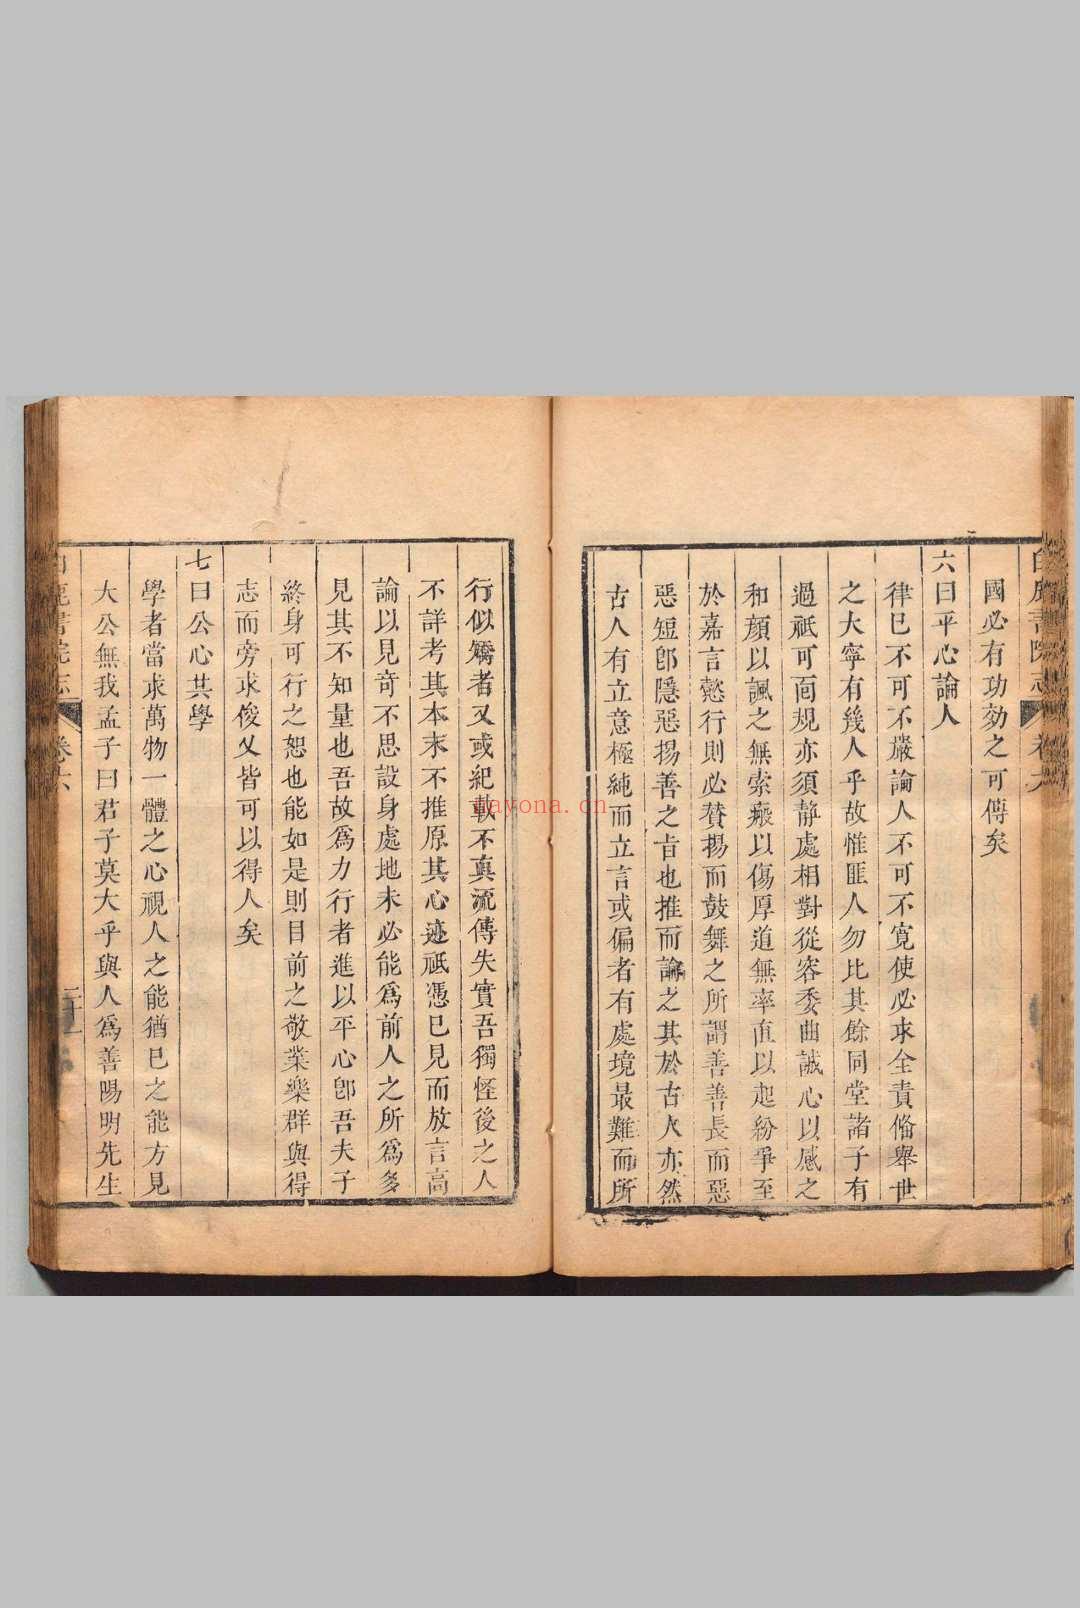 白鹿書院志 卷六
國必有功効之可傳矣
六曰平心論人
律已不可不嚴論人不可不寛使必求全責俻舉世
之大寧有幾人乎故惟匪人勿比其餘同堂諸子有
過祗可面規亦須静處相對從容委曲誠心以感之
和顔以諷之無索瘢以傷厚道無率直以起紛爭至
於嘉言懿行則必賛揚而鼓舞之所謂善善長而惡
惡短卽隱惡揚善之旨也推而論之其於古人亦然
古人有立意極純而立言或偏者有處境最難而所
行似矯者又或紀載不眞流傳失實吾獨怪後之人
不詳考其本末不推原其心迹祗憑已見而放言高
論以見竒不思設身處地未必能爲前人之所爲多
見其不知量也吾故爲力行者進以平心卽吾夫子
終身可行之恕也能如是則目前之敬業樂群與得
志而旁求俊乂皆可以得人矣
七曰公心共學
學者當求萬物一體之心視人之能猶已之能方見
大公無我孟子曰君子莫大乎與人爲善陽明先生
白鹿書院志 卷六
nayona.cn